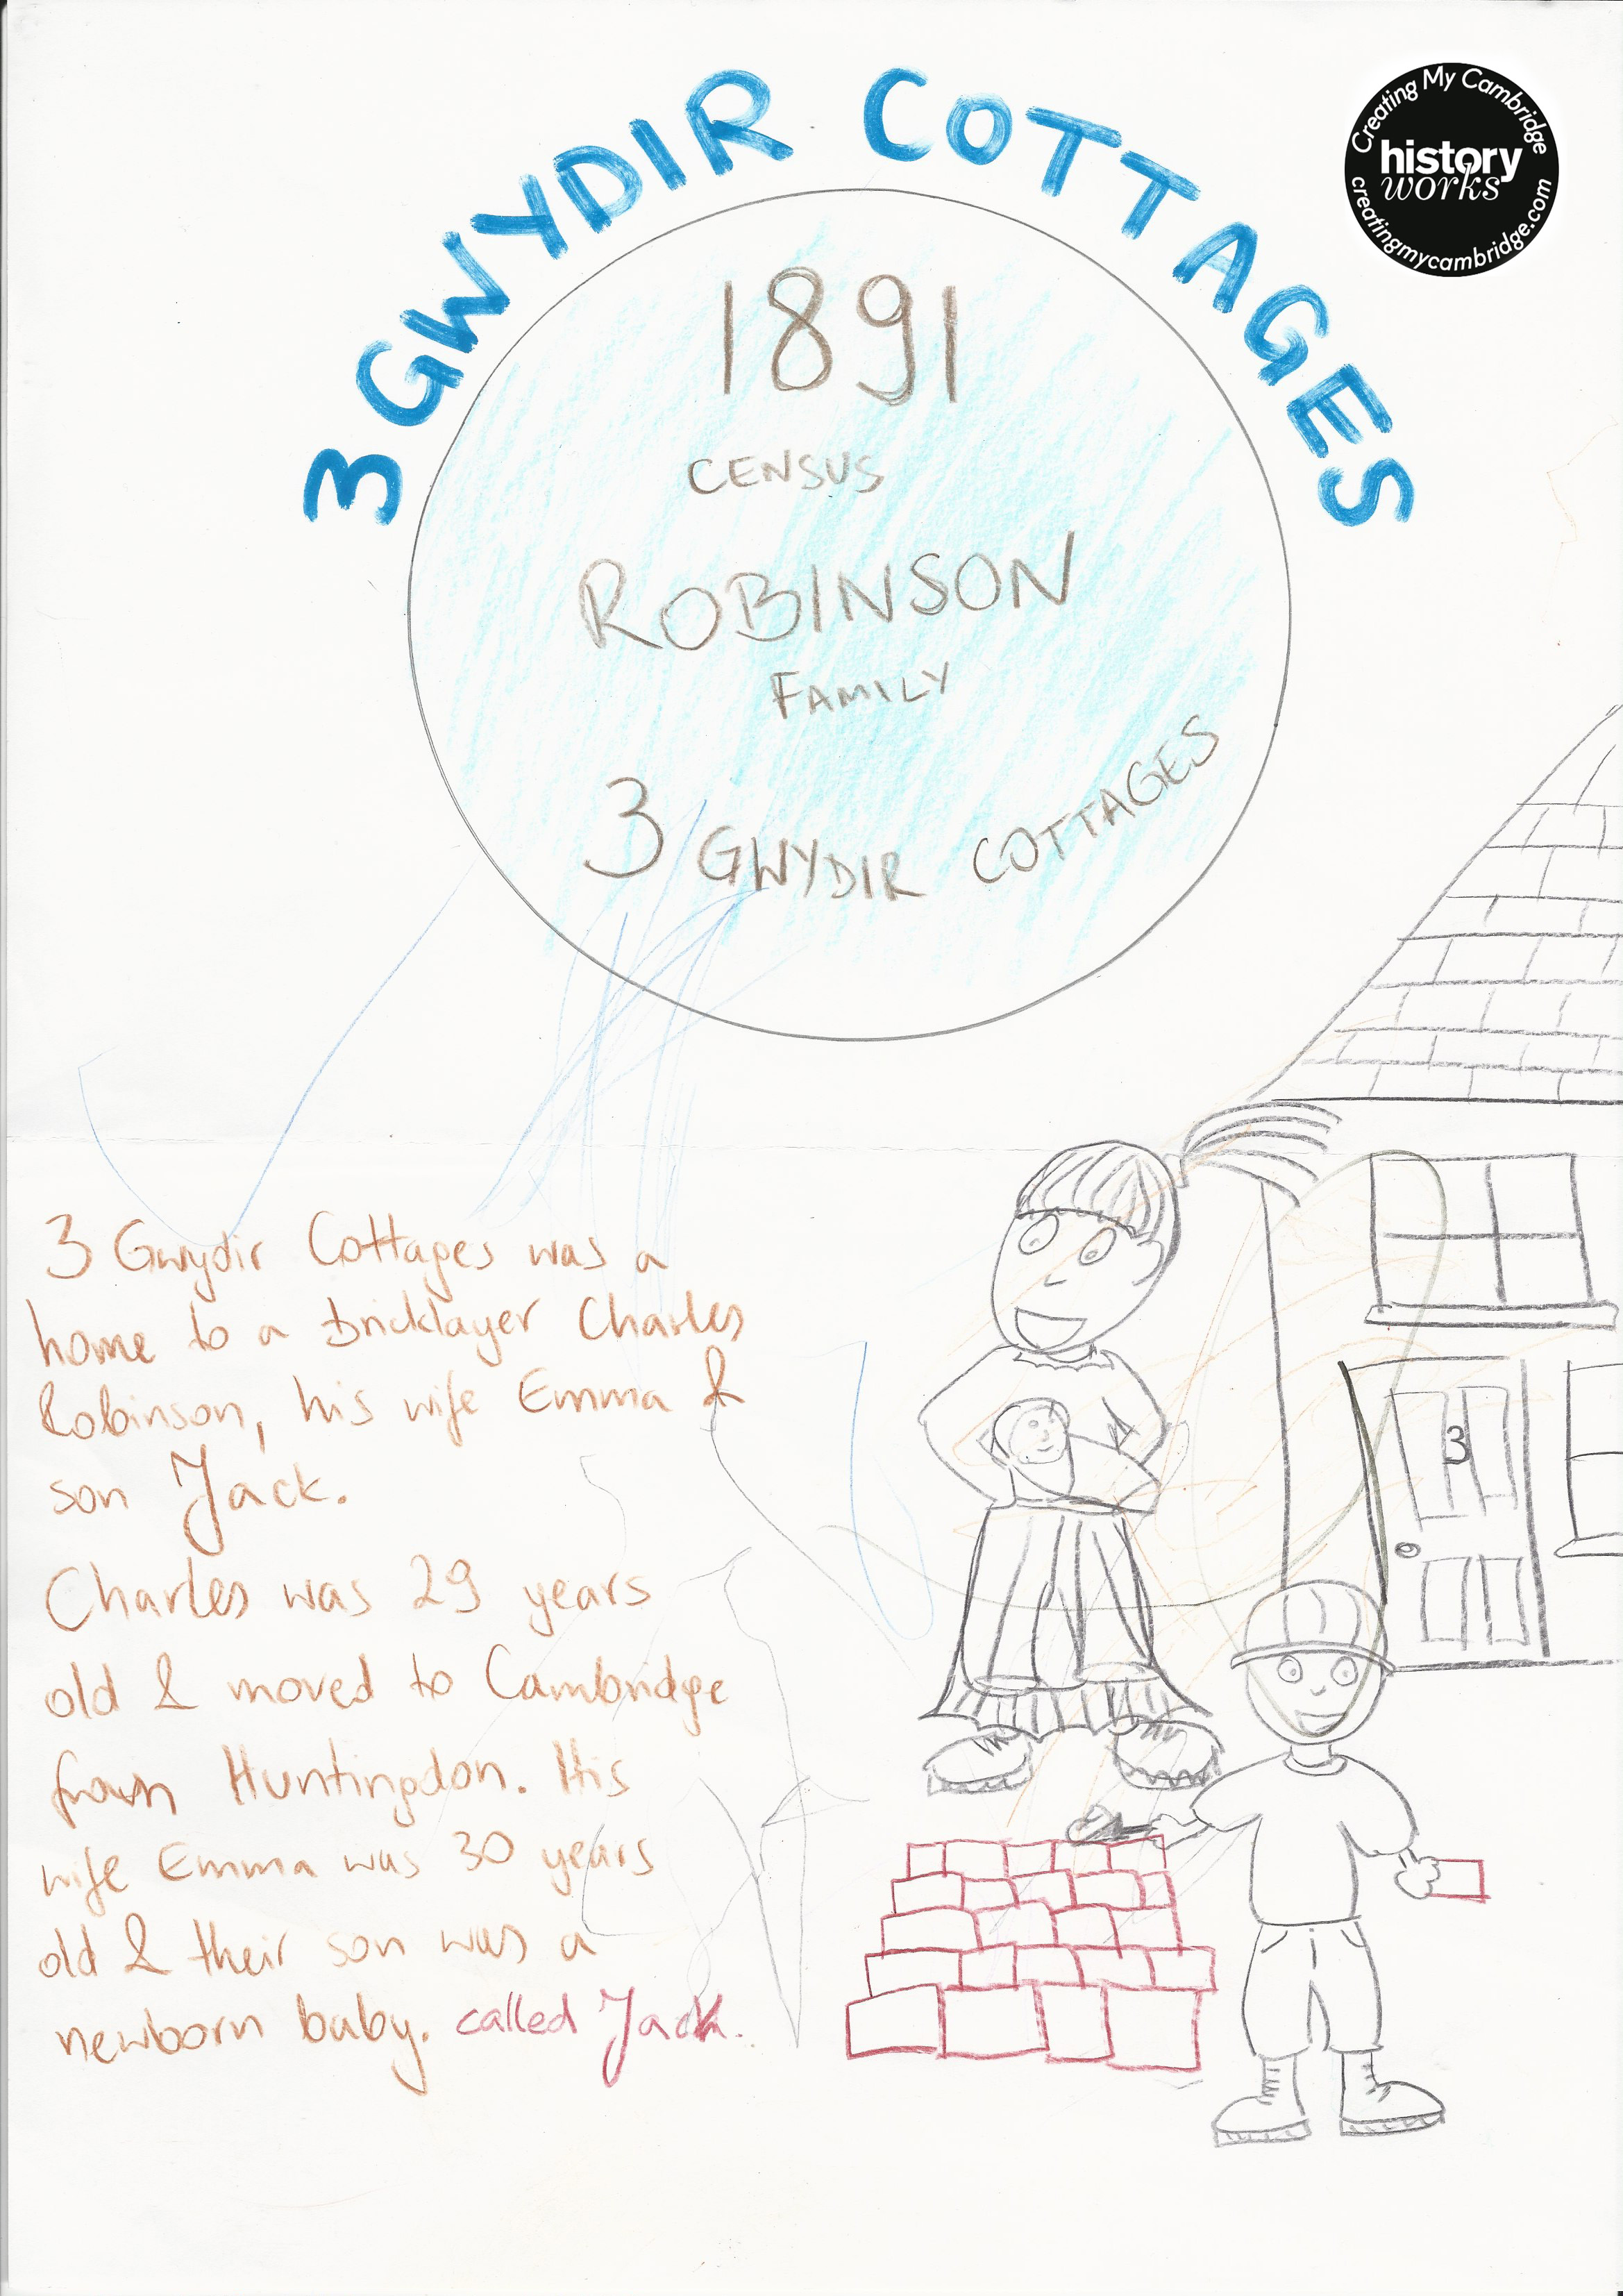 3 GWYDIR COTTAGES
Creating My Cambridge
history
works
creatingmycambridge.com
1891
CENSUS
ROBINSON
FAMILY
3 GWYDIR COTTAGES
3 Gwydir Cottages was a
home to a bricklayer Charles
Robinson, his wife Emma &
son Jack.
Charles was 29 years
old & moved to Cambridge
from Huntingdon. His
wife Emma was 30 years
old & their son was a
newborn baby. called Jack.
3